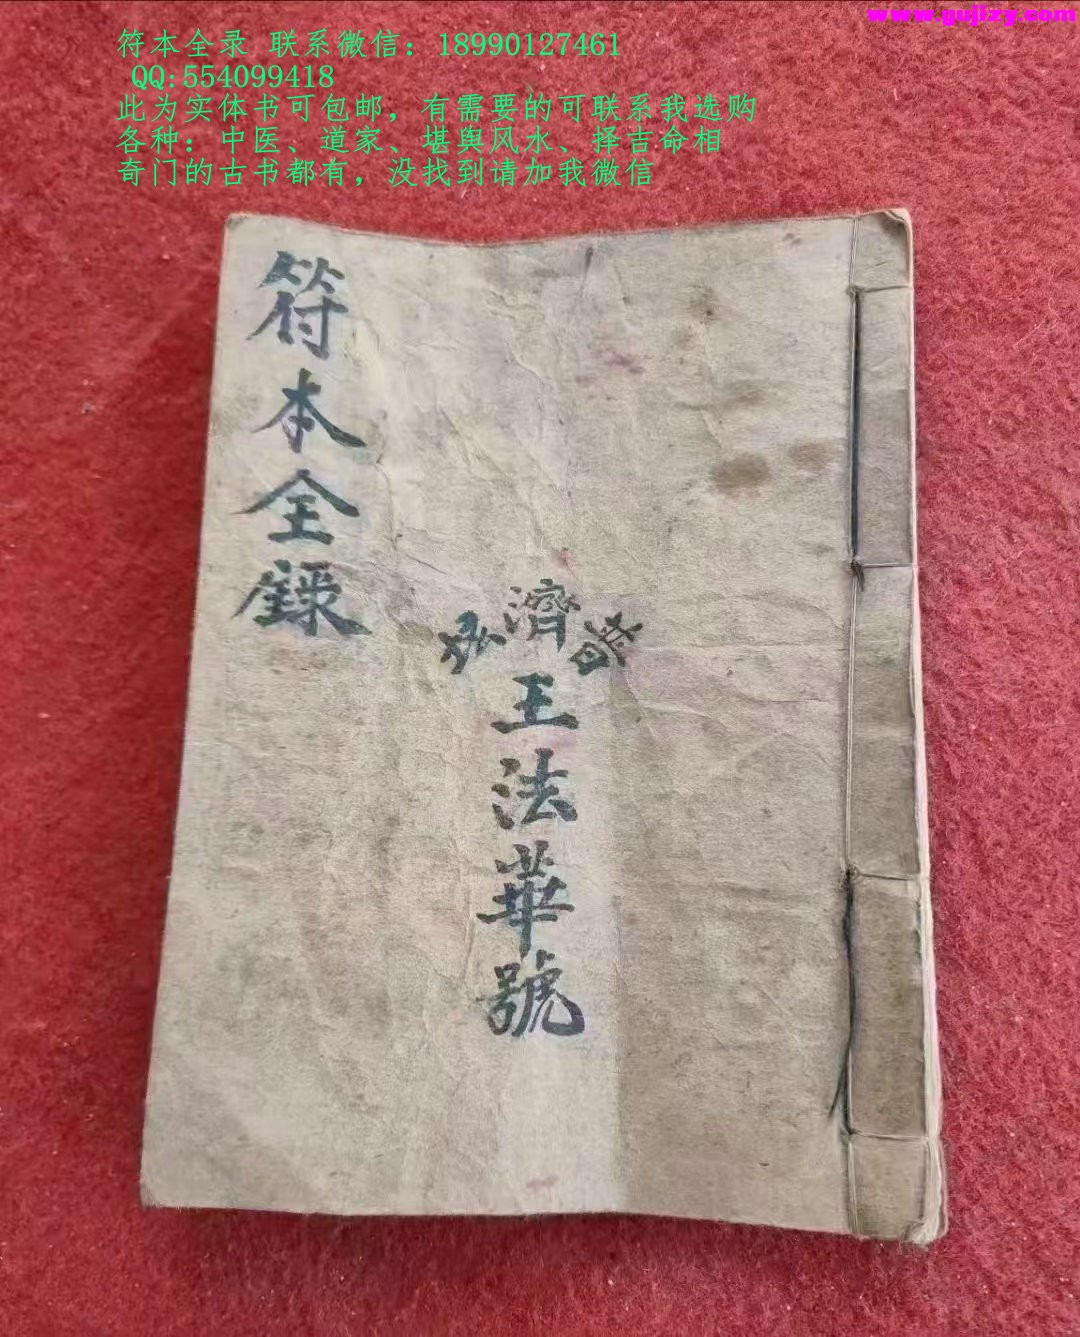 www.gujlzy.com
符本全录 联系微信：18990127461
QQ:554099418
此为实体书可包邮，有需要的可联系我选购
各种：中医、道家、堪舆风水、择吉命相
奇门的古书都有，没找到请加我微信
符本全錄
普濟坛
王法華號